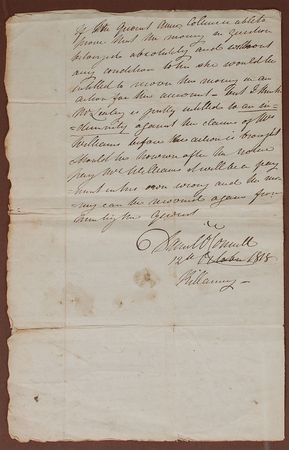 If the Querist Anne Collins is able to
prove that the money in question
belonged absolutely and without
any condition to her she would be
entitled to recover this money in an
action for the amount – But I think
Mr is justly entitled to an in-
demnity against the claims of Mrs
Williams before the action is brought
Should he however after the notice
pay Mrs Williams it will be a pay-
ment in his own wrong and the mo-
ney can be recovered again from
him by the Querist
Daniel O'Connell
12th October 1818
Killarney –